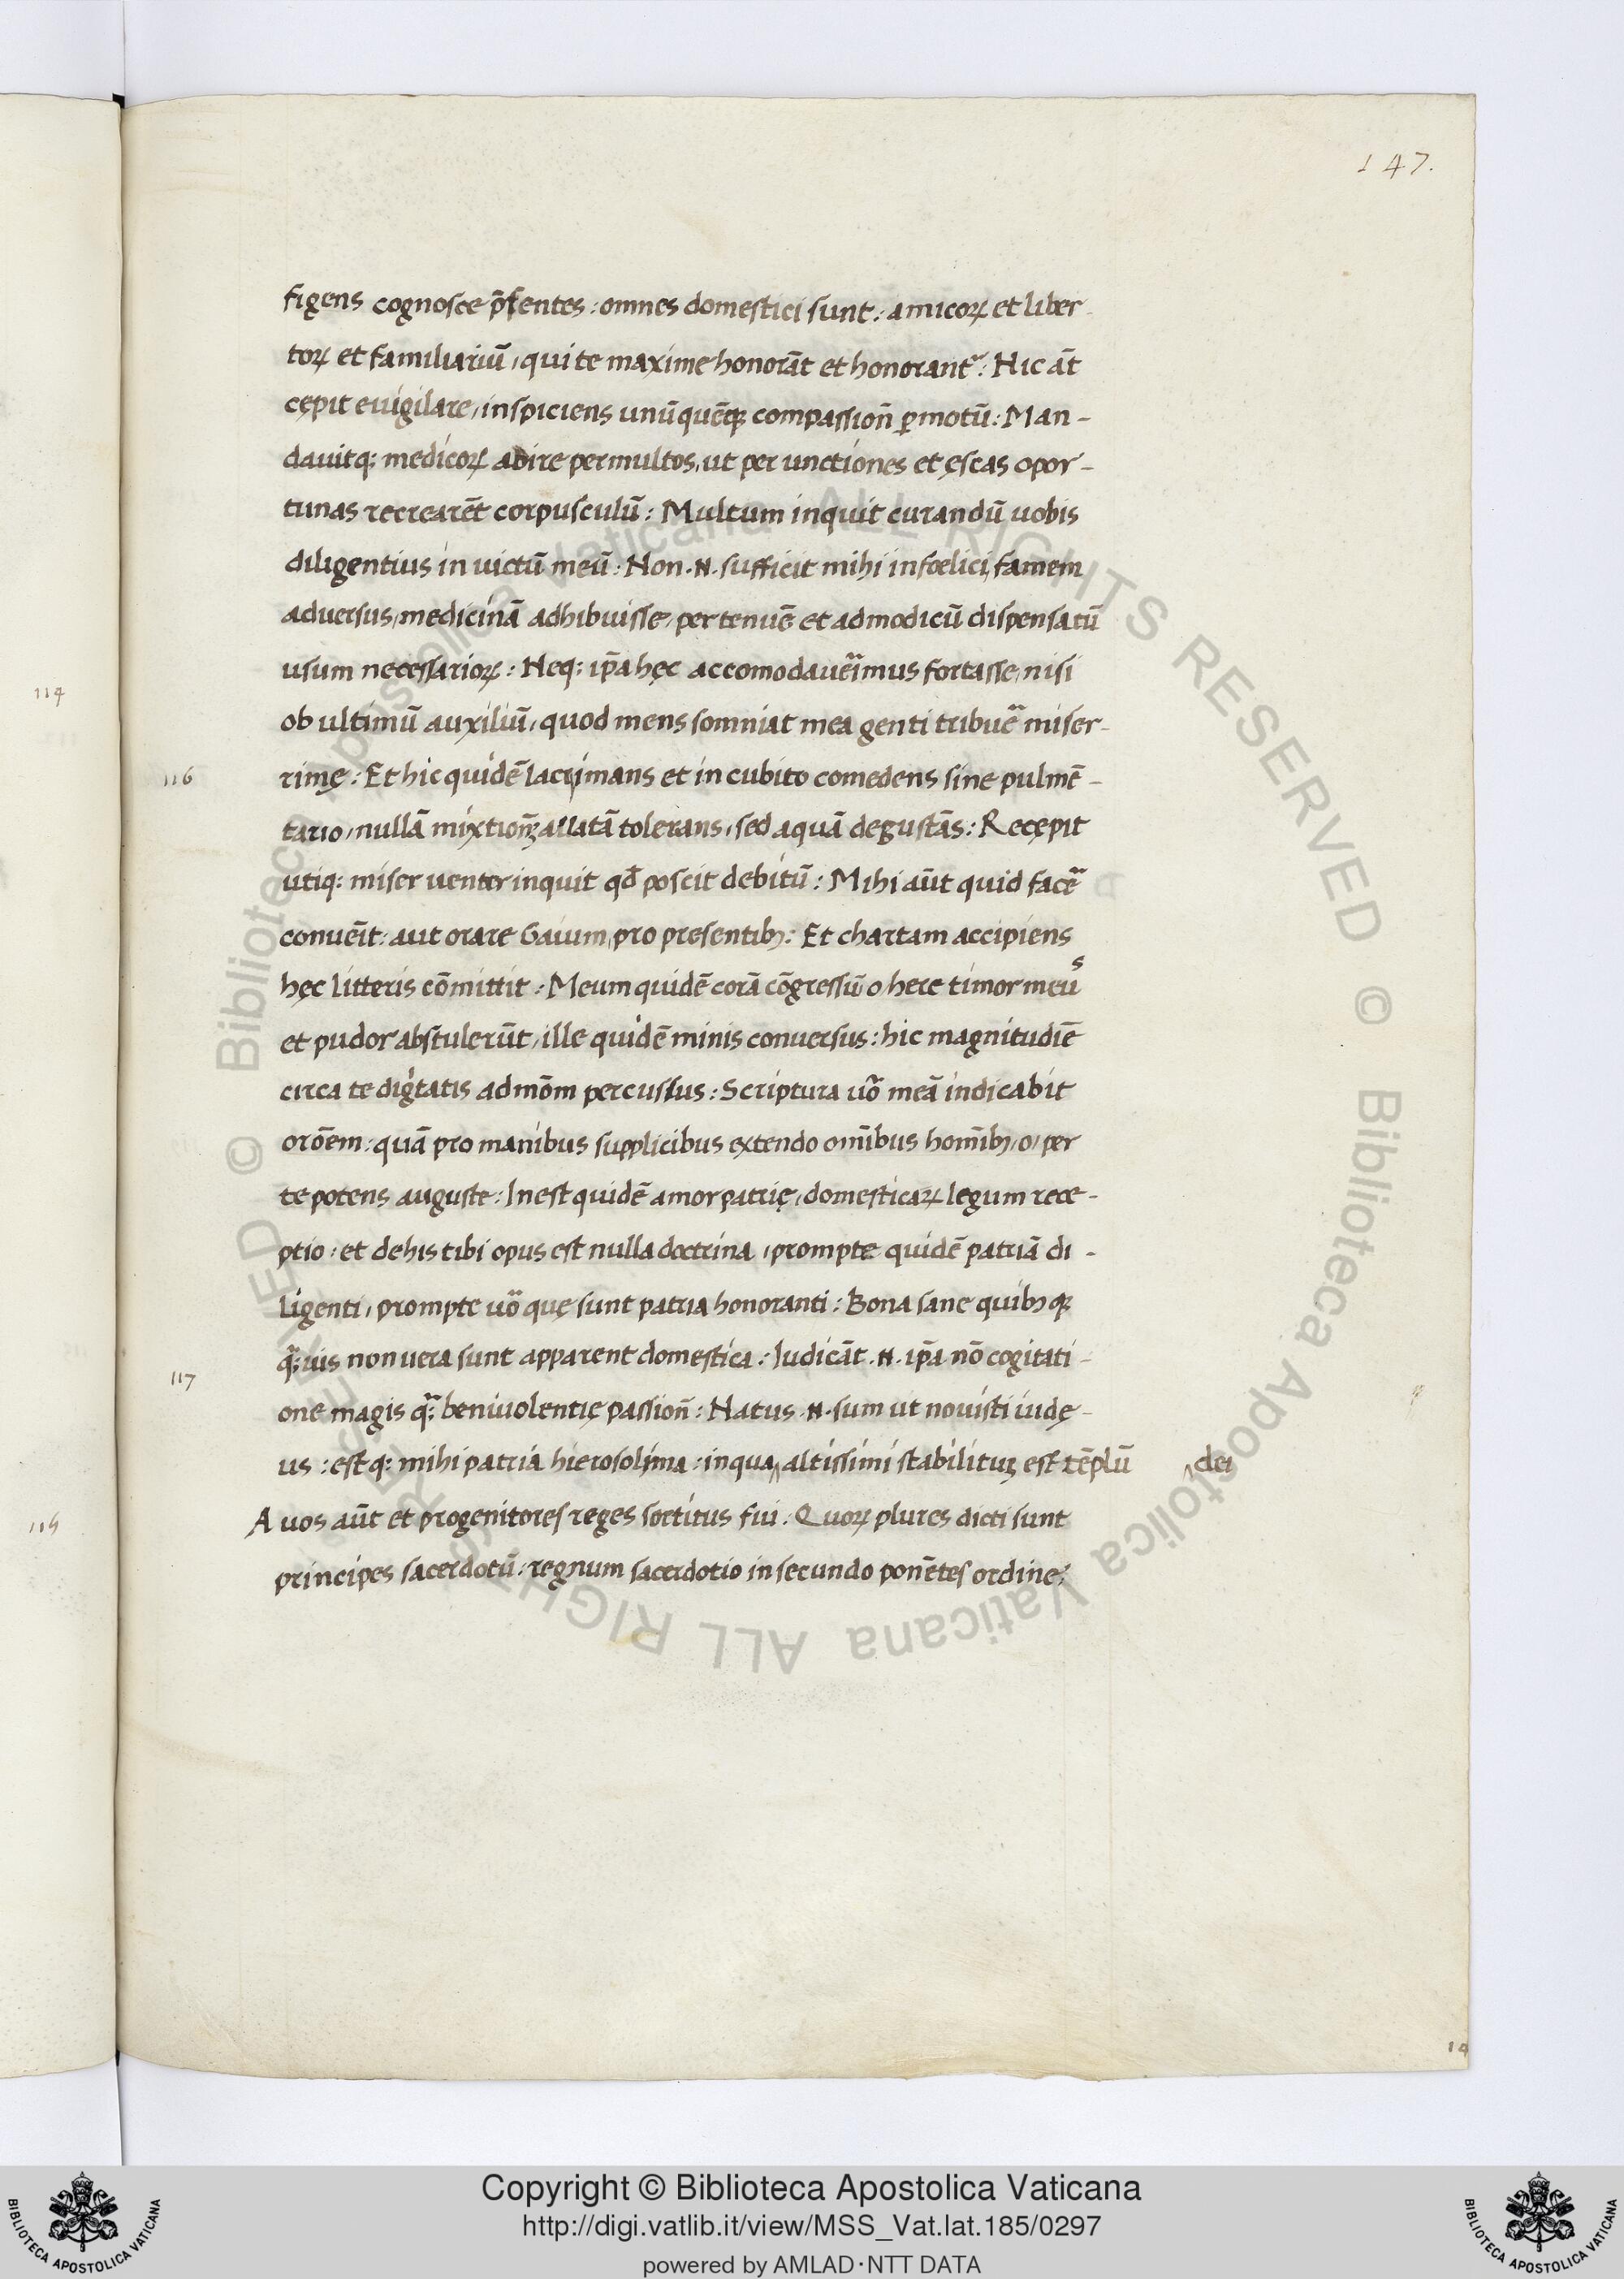 147.
figens cognosce p̄sentes : omnes domestici sunt : amicoꝝ et liber-
toꝝ et familiariū, qui te maxime honorāt et honorant᷑ : Hic āt
cępit evigilare, inspiciens unūquēqꝫ compassioñ ꝑmotū : Man-
davitqꝫ medicoꝝ adire permultos, ut per unctiones et ęscas opor-
tunas recrearēt corpusculū : Multum inquit curandū vobis
diligentius in victū meū : Non .N. sufficit mihi infœlici famem
adversus, medicinā adhibuisse, per tenuē et ad modicū dispensatū
usum necessarioꝝ : Neqꝫ ip̄a hęc accomodaverimus fortasse, nisi
ob ultimū auxiliū, quod mens somniat mea genti tribue᷑ miser-
116
rimę : Et hic quidē lacrimans et in cubito comedens sine pulmē-
tario, nullā mixtionꝫ allatā tolerans, sed aquā degustās : Recępit
utiqꝫ miser venter inquit qd̄ poscit debitū : Mihi aūt quid face᷑
convēit : aut orare Gaium, pro presentibꝫ : Et chartam accipiens
hęc litteris cōmittit : Meum quidē corā cōgressū o here timor meus
et pudor abstulerūt, ille quidē minis conversus : hic magnitudīe
circa te digītatis ad mōm percussus : Scriptura vō meā indicabit
orōem : quā pro manibus supplicibus extendo om̄ibus hom̄ibꝫ, o, per
te potens auguste : Inest quidē amor patrię, domesticaꝝ legum rece-
ptio : et de his tibi opus est nulla doctrina, prompte quidē patriā di-
ligenti, prompte vō quę sunt patria honoranti : Bona sane quibꝫqꝫ
q̄ꝫvis non vera sunt apparent domestica : Iudicāt .N. ip̄a nō cogitati-
117
one magis q̄ꝫ benivolentię passioñ : Natus .N. sum ut novisti iudę-
us : estqꝫ mihi patria hierosolima : in qua altissimi stabilituꝫ est tēplū dei
Avos aūt et progenitores reges sortitus fui : Quoꝝ plures dicti sunt
principes sacerdotū : regnum sacerdotio in secundo ponētes ordine :
114
115
14
© Biblioteca Apostolica Vaticana ALL RIGHTS RESERVED © Biblioteca Apostolica Vaticana ALL RIGHTS RESERVED
Copyright © Biblioteca Apostolica Vaticana
http://digi.vatlib.it/view/MSS_Vat.lat.185/0297
powered by AMLAD·NTT DATA
BIBLIOTECA APOSTOLICA VATICANA
BIBLIOTECA APOSTOLICA VATICANA